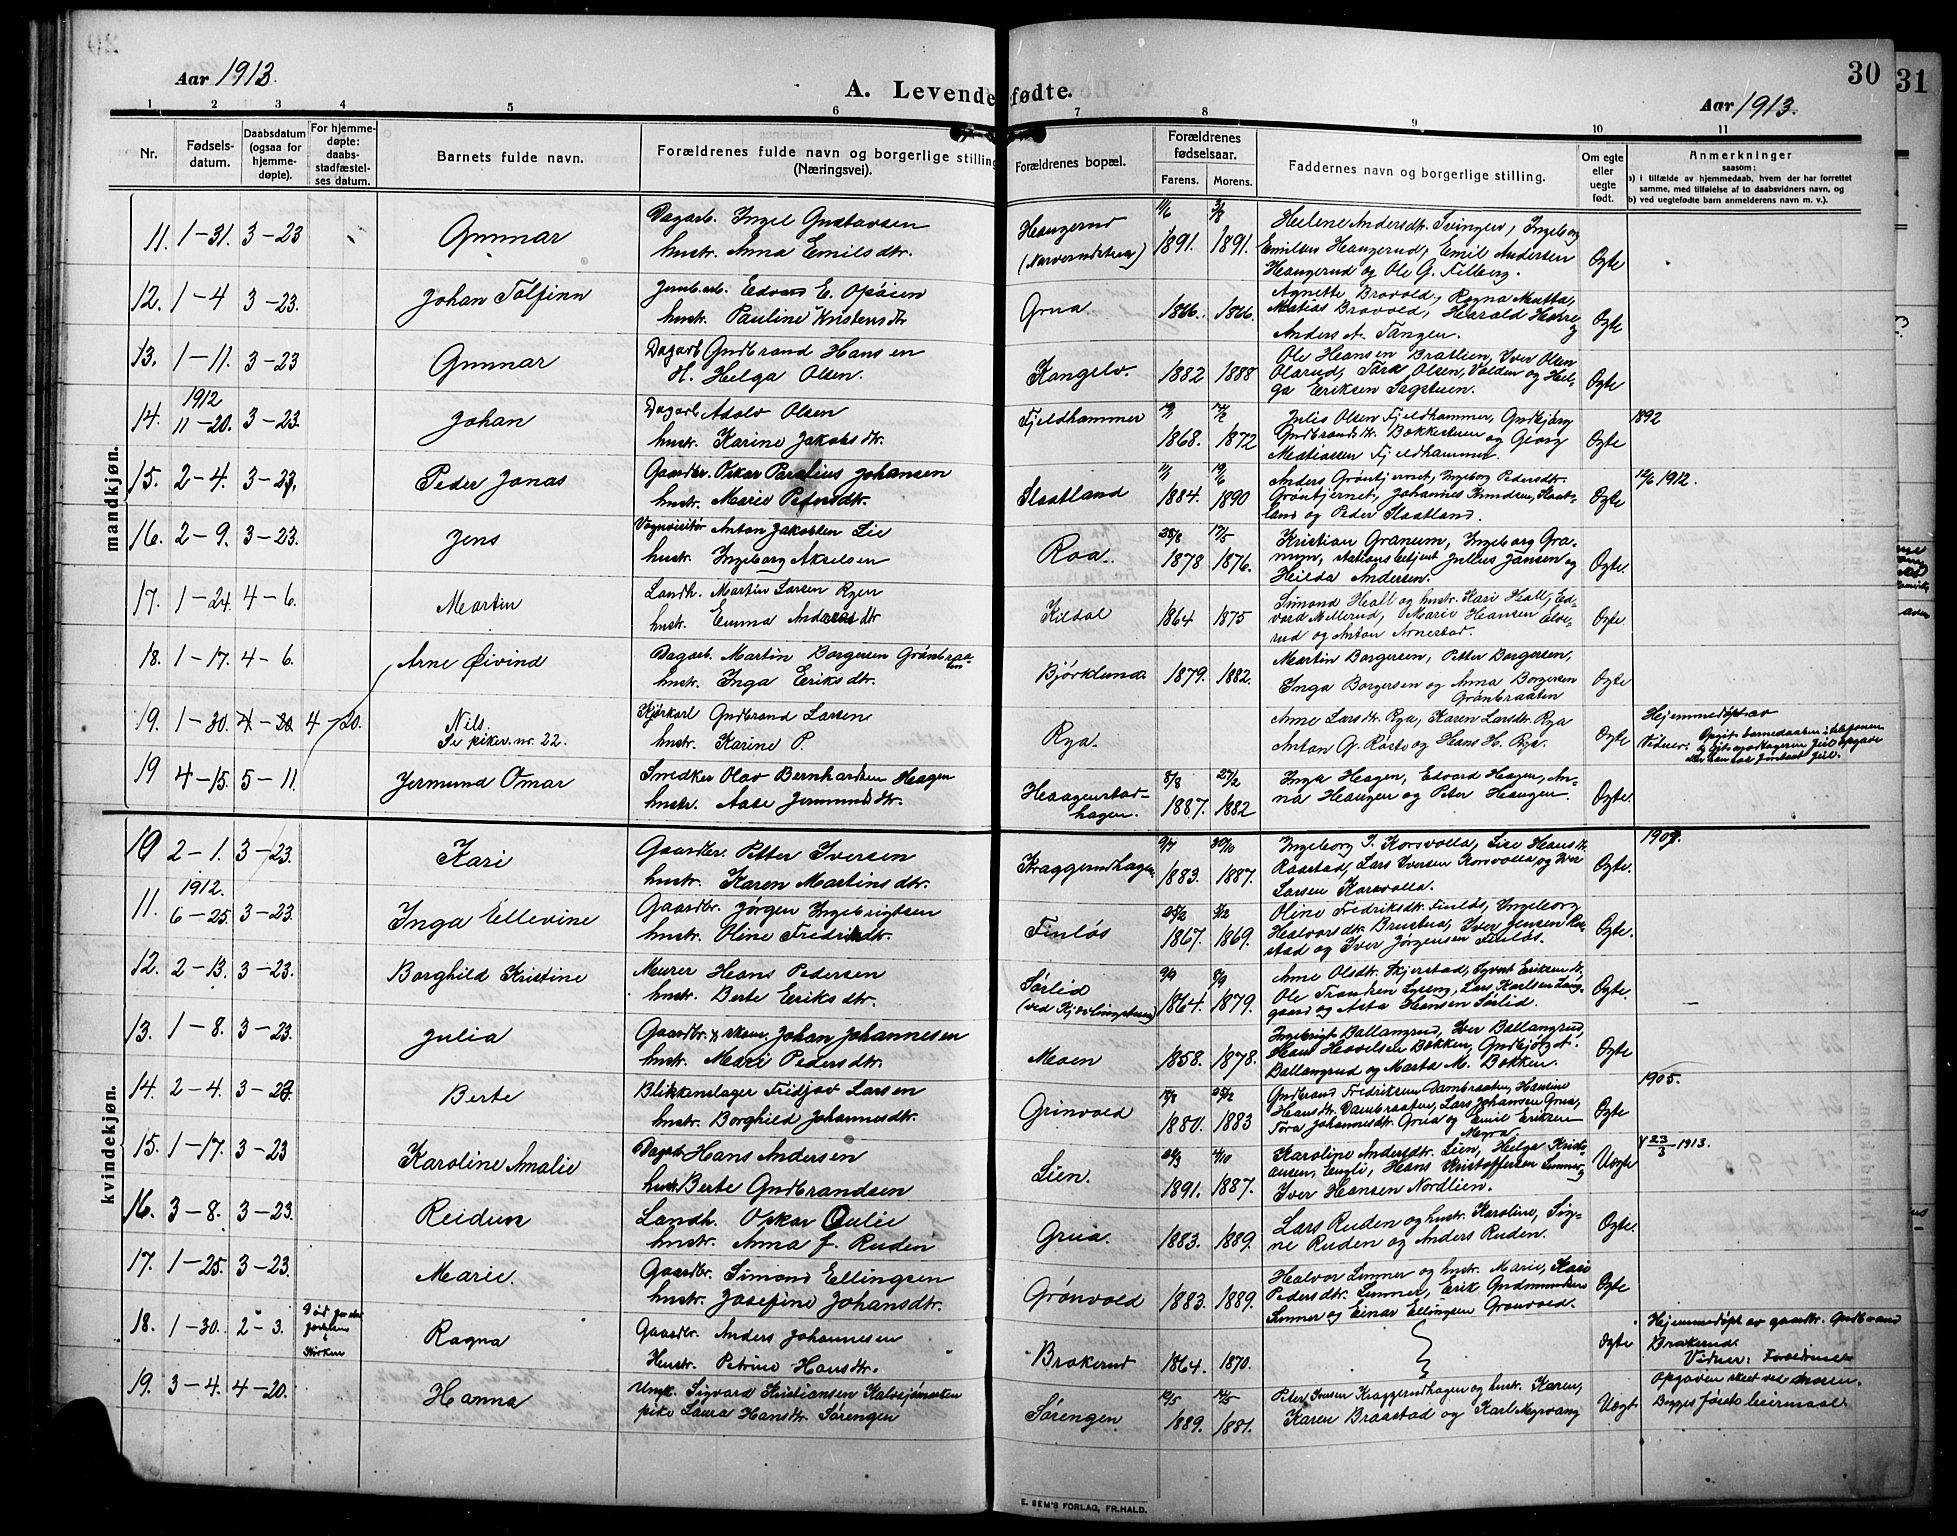 Aar 1913.
A. Levendefødte.
30
31
Aar 1913.
1 2 3 4 5 6 7 8 9 10 11
Nr.
Fødsels-
datum.
Daabsdatum
(ogsaa for
hjemme-
døpte).
For hjemme-
døpte:
daabs-
stadfæstel-
ses datum.
Barnets fulde navn.
Forældrenes fulde navn og borgerlige stilling
(Næringsvei).
Forældrenes bopæl.
Forældrenes
fødselsaar.
Farens. Morens.
Faddernes navn og borgerlige stilling.
Om egte
eller
uegte
født.
Anmerkninger
saasom:
a) i tilfælde av hjemmedaab, hvem der har forrettet
samme, med tilføielse af to daabsvidners navn, og
b) ved uegtefødte barn anmelderens navn m. v.).
mandkjøn.
11. 1-31. 3-23 Gunnar
Dagarb. Ingel Gustavsen
hustr. Anna Emilsdtr.
Haugerud
11/6 1891. 3/8 1891.
Helene Andersdtr. Svingen, Ingeborg
Emilsen Haugerud, Emil Andersen
Haugerud og Ole G. Filberg.
Egte
12. 1-4 3-23. Johan Tolfinn
Jernb.arb. Edvard E. Opøien
hustr. Pauline Kristensdtr
Grua 1866. 1866.
Agnette Brovold, Ragna Mutta,
Matias Brovold, Harald Horre
og Anders A. Tangen.
Egte
13. 1-11. 3-23 Gunnar
Dagarb Gudbrand Hansen
H. Helga Olsen.
Kangelv. 1882 1888
Ole Hansen Bratlien, Iver Olsen
Olerud, Tora Olsen, Volden og Hel-
ga Eriksen Sagstuen.
Egte
14. 1912 11-20. 3-23. Johan
Dagarb Adolv Olsen
hustr. Karine Jakobsdtr
Fjeldhammer 1868. 1872
Julie Olsen Fjeldhammer, Gudbjørg
Gudbrandsdtr. Bokkestuen og Georg
Matiassen Fjeldhammer.
Egte 1892
15. 2-4. 3-23. Peder Jonas
Gaardbr. Oskar Paulius Johansen
hustr. Marie Petersdtr.
Slaatland 11/1 1884. 19/6 1890
Anders Grøntjernet, Ingeborg Pedersdtr.
Grøntjernet, Johannes Knudsen, Slaat-
land og Peder Slaatland.
Egte 12/6 1912.
16. 2-9. 3-23. Jens
Vognvisitør Anton Jakobsen Lie
hustr. Ingeborg Akselsen
Roa. 28/8 1878 17/5 1876.
Kristian Granum, Ingeborg Gra-
num, stationsbetjent Julius Jansen og
Hilda Andersen.
Egte.
17. 1-24. 4-6. Martin
Landh. Martin Larsen Ryen
hustr. Emma Andersdtr
Kildal 1864 1875
Simond Hall og hustr. Kari Hall, Ed-
vard Millerud, Marie Hansen Elve-
rud og Anton Arnestad.
Egte
18. 1-17. 4-6. Arne Øivind
Dagarb. Martin Borgersen Grønbraa-
ten
hustr. Inga Eriksdtr.
Bjørklund 1879. 1882.
Martin Borgersen, Petter Borgersen,
Inga Borgersen og Anna Borgersen
Grønbraaten
Egte
19. 1-30. 4-20 4-20. Nils.
Se piker. nr. 22.
Kjørkarl Gudbrand Larsen
hustr. Karine P.
Rya.
Anne Larsdtr. Rya, Karen Larsdtr. Rya
Anton G. Roste og Hans H. Rya.
Egte
Hjemmedøpt av
Vidner:
19 4-15. 5-11. Jermund Omar
Smedker Olav Bernhardsen Hagen
hustr. Aase Jermundsdtr.
Haagenstad-
hagen. 8/8 1887. 27/2 1882
Inga Hagen, Edvard Hagen, An-
na Haugen og Peter Haugen.
Egte.
kvindekjøn.
10 2-1. 3-23. Kari
Gaardbr. Petter Iversen
hustr. Karen Martinsdtr.
Kraggerudhagen 1883. 1887.
Ingeborg I. Korsvolla, Lise Hansdtr.
Raastad, Lars Iversen Korsvolla og Iver
Larsen Korsvolla.
Egte. 1909.
11. 1912. 6-25. 3-23. Inga Ellevine
Gaardbr. Jørgen Ingebrigtsen
hustr. Oline Fredriksdtr.
Finløs 25/2 1867. 1869.
Oline Fredriksdtr. Finløs, Ingeborg
Halvorsdtr. Brustua, Iver Jensen Ra-
stad og Iver Jørgensen Finløs.
Egte.
12. 2-13. 3-23. Borghild Kristine
Murer Hans Pedersen
hustr. Berte Eriksdtr.
Sørlid
9/9 1864. 8/9 1879.
Anne Olsdtr. Skjerstad, Syvert Eriksen
Ole Trondsen Lyseng, Lars Karlsen Lang-
gaard og Asta Hansen Sørlid.
Egte. —
13. 1-8. 3-23. Julia
Gaardbr. Johan Johannesen
hustr. Mari Pedersdtr.
Moen 1858. 1878.
Ingebrigt Ballangrud, Iver Ballangrud,
Hans Havelsen Bokken, Gudbjørg A.
Ballangrud og Marta M. Bokken.
Egte
14. 2-4. 3-23. Berte
Blikkenslager Fridjov Larsen
hustr. Borghild Johannesdtr.
Grinvold 1880. 1883
Gudbrand Fredriksen Dambraaten, Hansine
Hansdtr. Dambraaten, Lars Johansen Grua,
Tora Johannesdtr. Grua og Emil Eriksen
Myra
Egte 1905.
15. 1-17. 3-23 Karoline Amalie
Dagarb Hans Andersen
hustr Berte Gudbrandsen
Lien. 1891. 1887.
Karoline Andersdtr. Lien, Helga Kristi-
ansen, Engli, Hans Kristoffersen Lunner og
Iver Hansen Nordlien.
Uegte 23/3 1913.
16. 3-8. 3-23. Reidun
Landh. Oskar Oulie
hustr. Anna J. Ruden
Grua. 1883. 1889.
Lars Ruden og hustr. Karoline, Sig-
ne Ruden og Anders Ruden.
Egte.
17. 1-25. 3-23. Marie.
Gaardbr. Simond Ellingsen
hustr. Josefine Johansdtr.
Grønvold 1883. 1889.
Halvor Lunner og hustr. Marie, Kari
Pedersdtr. Lunner, Erik Gudmundsen
Lunner og Einar Ellingsen Grønvold.
Egte
18. 1-30. 2-3. Ragna
Gaardbr. Anders Johannesen
Hustr. Petrine Hansdtr.
Brakerud 1864. 1870.
Egte
Hjemmedøpt av gaardbr. Gudbrand
Brakerud.
Vidner: Forældrene
19. 3-4. 4-20. Hanna
Umk. Sigvard Kristiansen Kalvsjømarken
pike Laura Hansdtr. Sørengen
Sørengen 1889. 1881.
Peter Iversen Kraggerudhagen og hustr. Karen,
Karen Braastad og Karl Myrvang
Uegt.
Opgaven skeet ved moren.
Begges første leiermaal.
E. SEM'S FORLAG, FR.HALD.